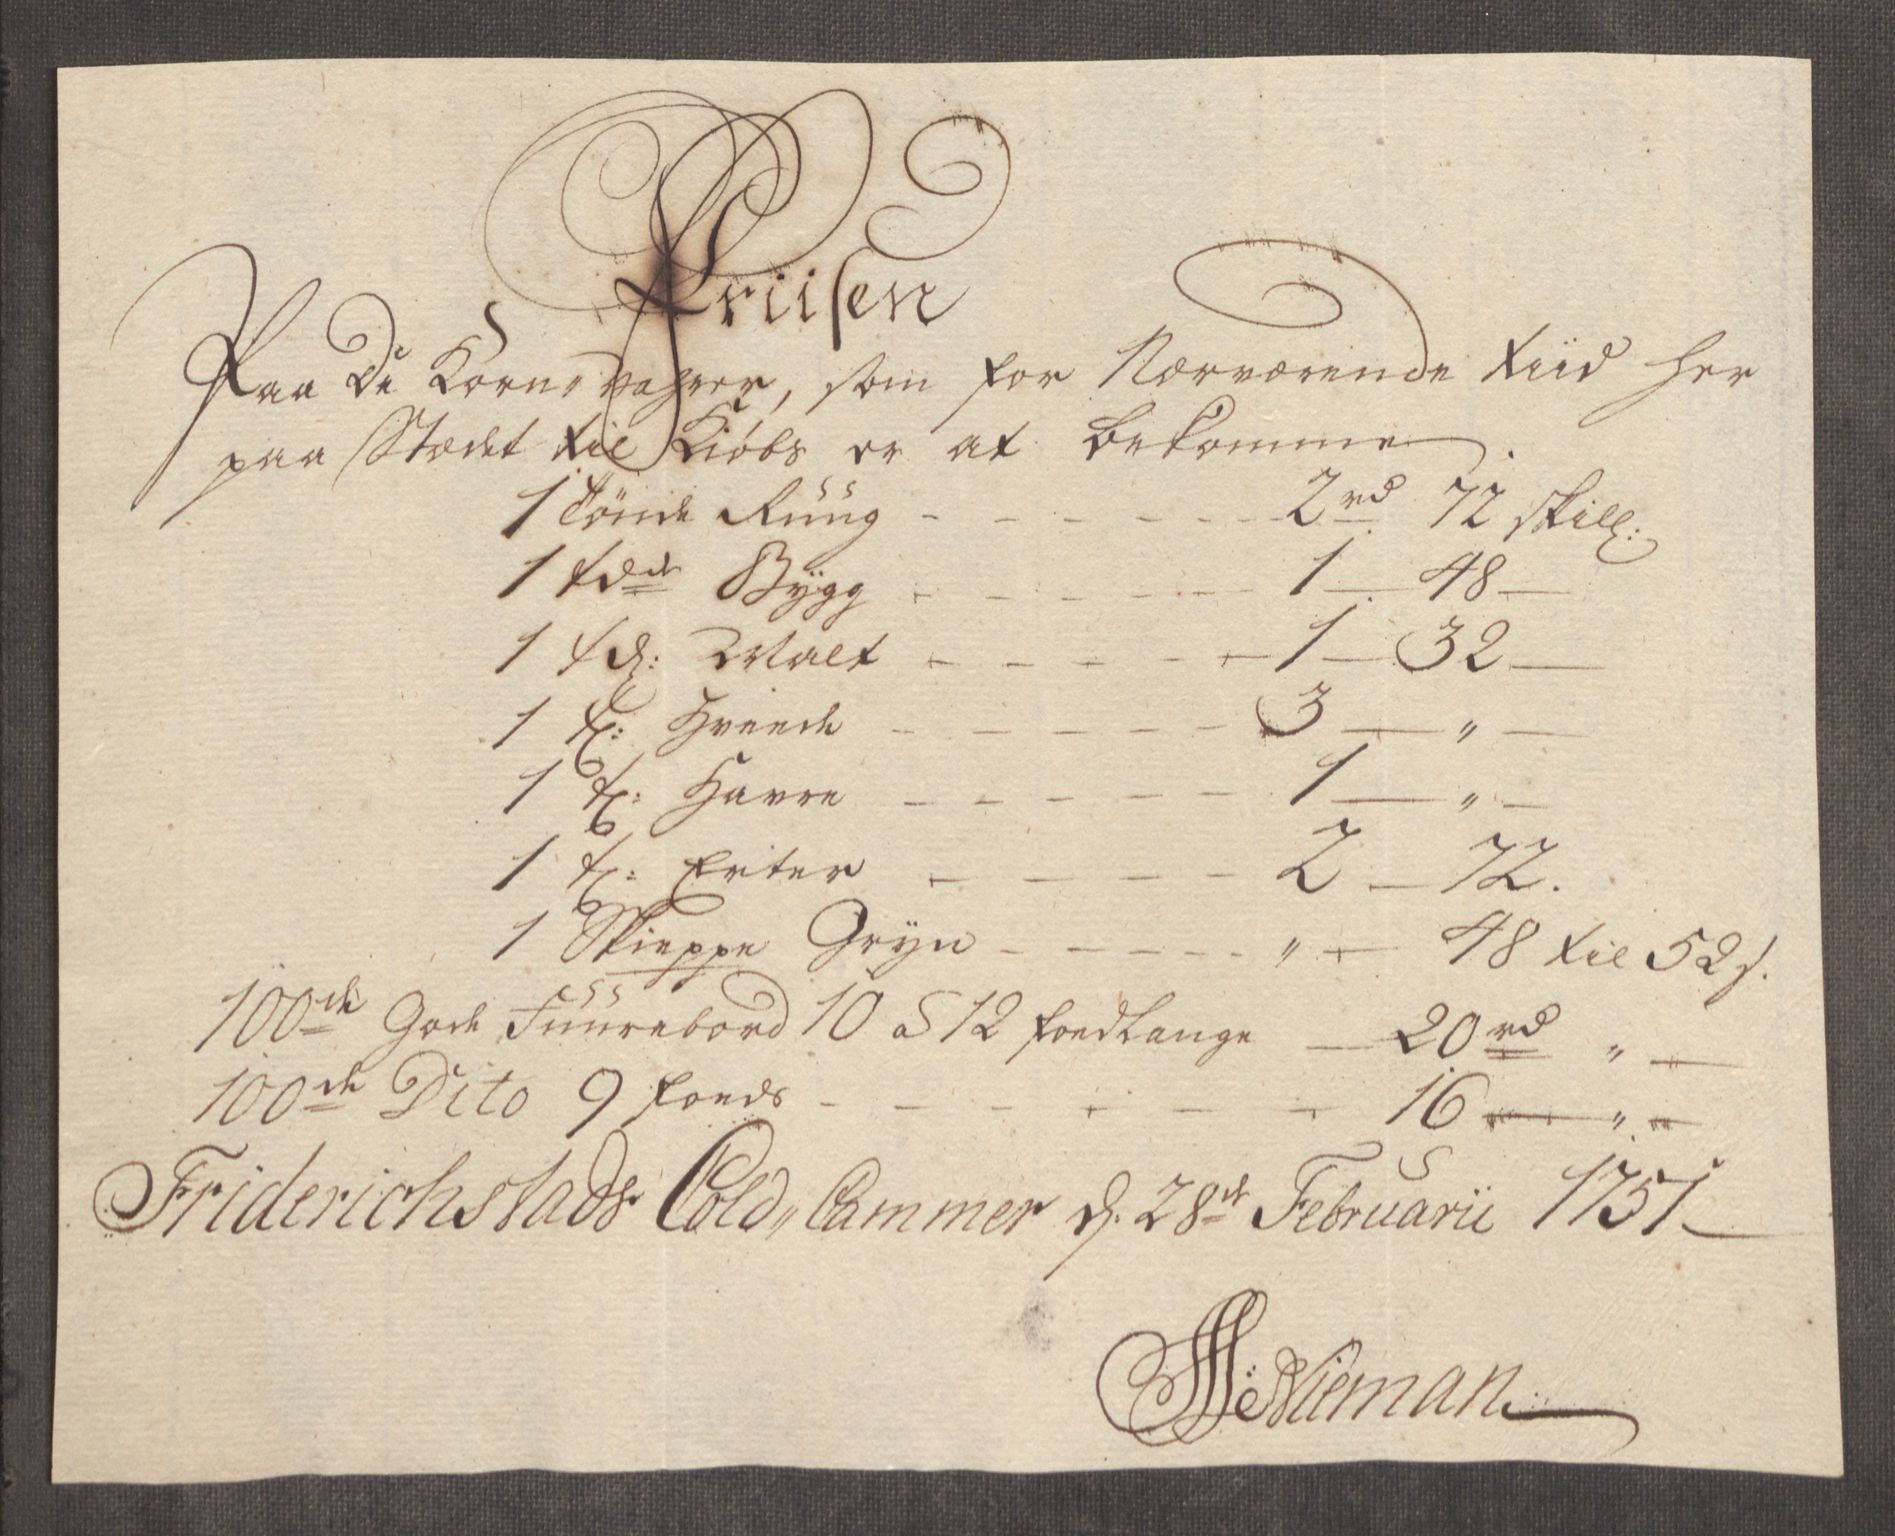 Priisen
Paa De Korn„Vahrer, som for Nærværende tiid her
paa Stædet til Kiøbs er at bekomme.
1 Tønde Rüüg - - - - - - 2 rd 72 skill:
1 tdde Bÿgg - - - - - - 1 — 48 —
1 td: Malt - - - - - - 1 — 32 —
1 t: Hveede - - - - - - 3 — „ —
1 t: Havre - - - - - - 1 — „ —
1 t: Erter - - - - - - 2 — 72.
1 Skieppe Grÿn - - - - - „ — 48 til 52 s.
100de Gode Fuurebord 10 a 12 foed Lange — 20 rd „ —
100de Dito 9 foeds - - - - - - - 16 — „ —
Friderichstads Told„Cammer d. 28de Februarii 1751
Nieman